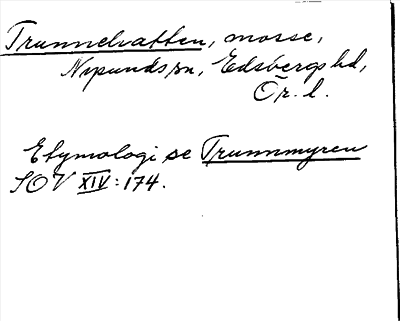 Trunnelvatten, mosse,
Nysunds sn, Edsbergs hd,
Ör. l.
Etymologi se Trunnmyren
SOV XIV: 174.